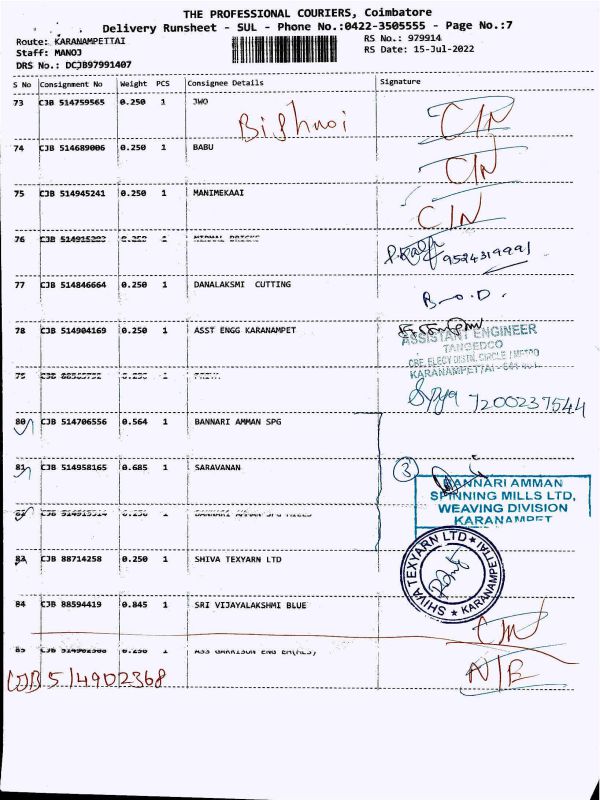 THE PROFESSIONAL COURIERS, Coimbatore
Delivery Runsheet - SUL - Phone No.:0422-3505555 - Page No.:7
Route: KARANAMPETTAI RS No.: 979914
Staff: MANOJ RS Date: 15-Jul-2022
DRS No.: DCJB97991407
S No Consignment No Weight PCS Consignee Details Signature
73 CJB 514759565 0.250 1 JWO
Bighnoi C/N
74 CJB 514689006 0.250 1 BABU
C/N
75 CJB 514945241 0.250 1 MANIMEKAAI
C/N
76 CJB 0.250 1
9524319991
77 CJB 514846664 0.250 1 DANALAKSMI CUTTING
B-O.D.
78 CJB 514904169 0.250 1 ASST ENGG KARANAMPET
ASSISTANT ENGINEER
TANGEDCO
CBE. ELECY DISTN. CIRCLE / METRO
KARANAMPETTAI
79
7200237544
80 CJB 514706556 0.564 1 BANNARI AMMAN SPG
81 CJB 514958165 0.685 1 SARAVANAN
3
BANNARI AMMAN
SPINNING MILLS LTD,
WEAVING DIVISION
KARANAMPET
82 CJB 0.250 1 BANNARI AMMAN SPG MILLS
83 CJB 88714258 0.250 1 SHIVA TEXYARN LTD
SHIVA TEXYARN LTD
KARANAMPETTAI
84 CJB 88594419 0.845 1 SRI VIJAYALAKSHMI BLUE
85 CJB 514902368 0.250 1 ASS GARRISON ENG
CJB 514902368
N/E